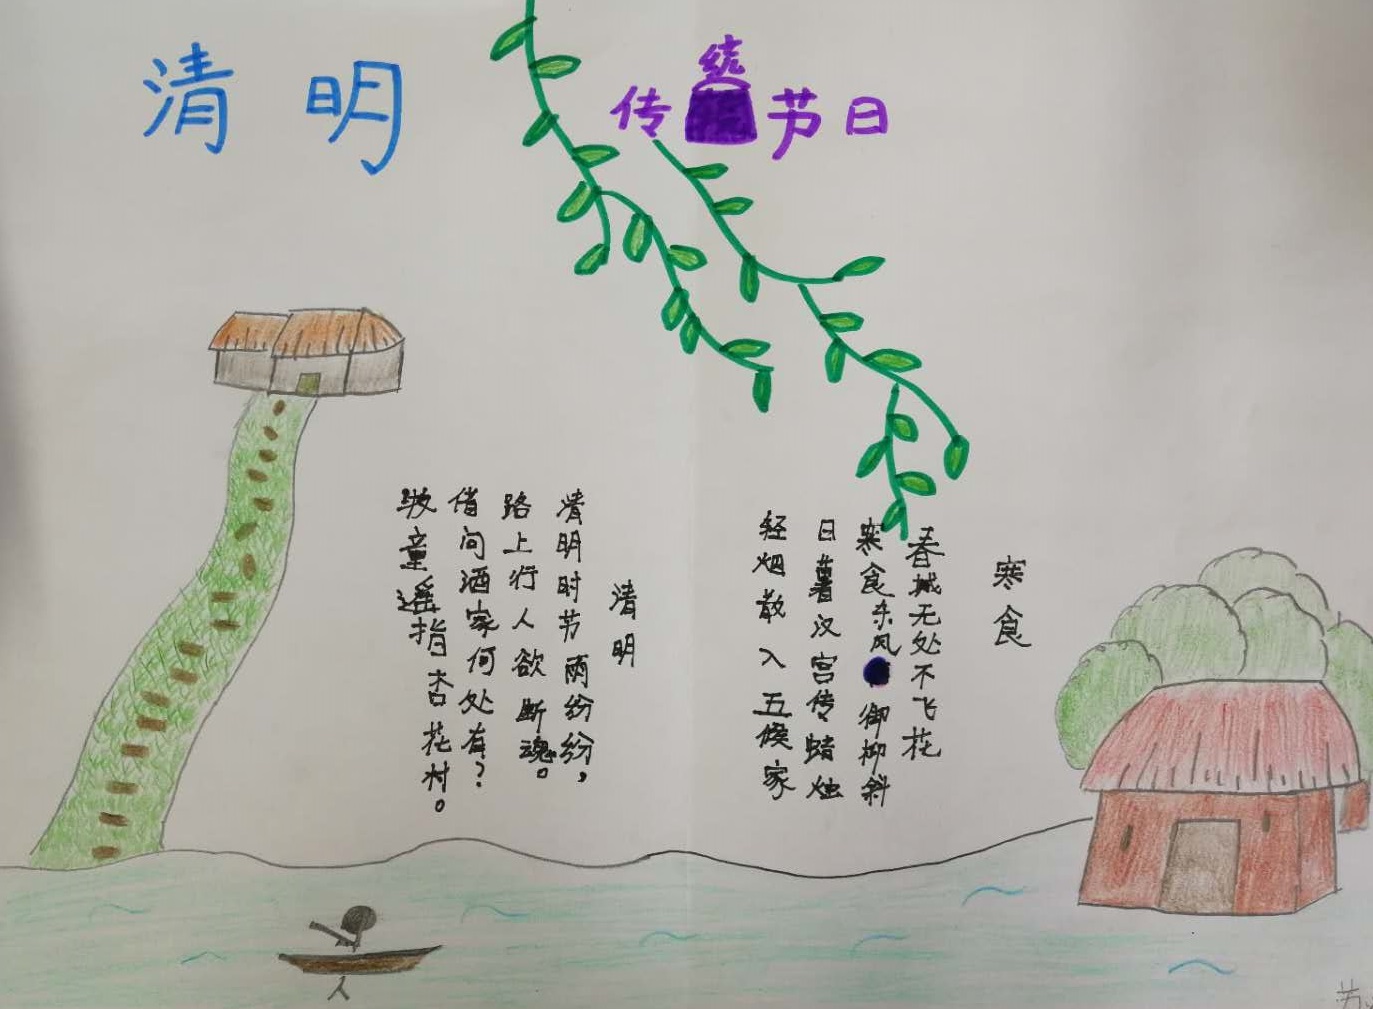 清明
传统节日
寒食
春城无处不飞花
寒食东风御柳斜
日暮汉宫传蜡烛
轻烟散入五候家
清明
清明时节雨纷纷，
路上行人欲断魂。
借问酒家何处有？
牧童遥指杏花村。